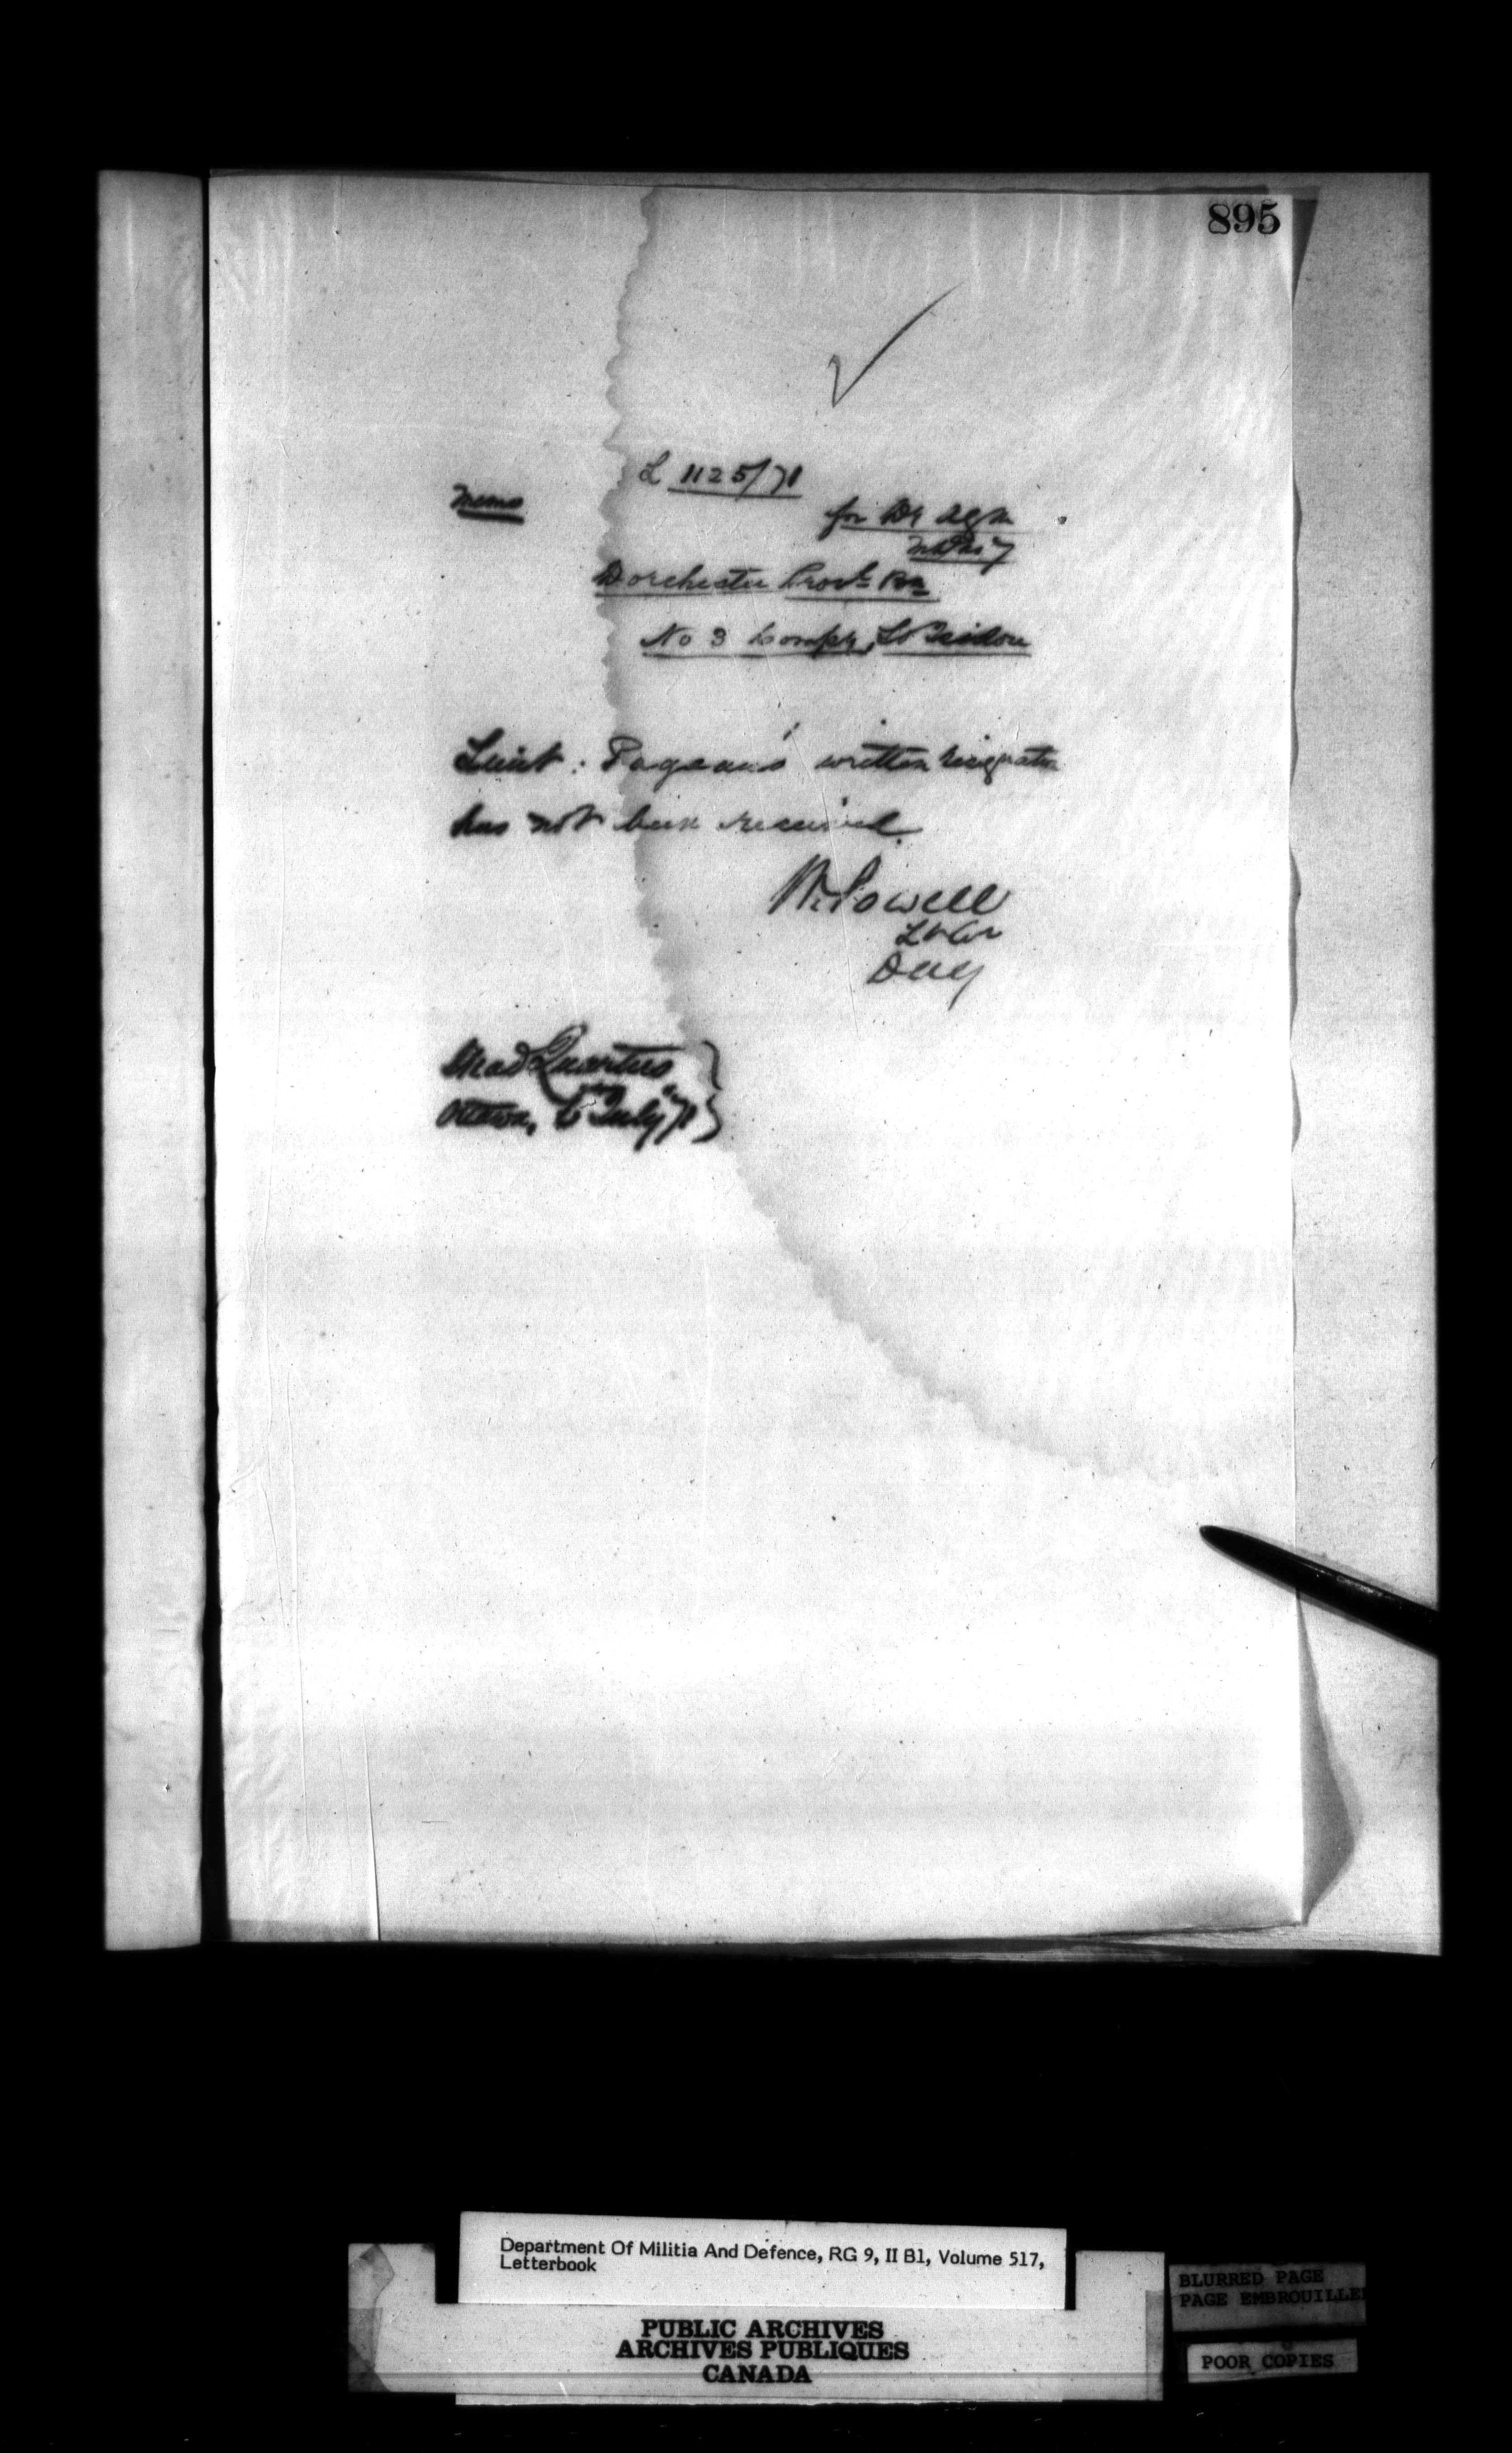 895
L 1125/71
Memo
for Dy AGM
Dorchester Provl Bn
No 3 Compy, St Isidore
Lieut: Pageau's written resignation
has not been received.
W. Powell
Lt Col
DAG
Head Quarters
Ottawa, 6 July 71
Department Of Militia And Defence, RG 9, II B1, Volume 517,
Letterbook
PUBLIC ARCHIVES
ARCHIVES PUBLIQUES
CANADA
BLURRED PAGE
PAGE EMBROUILLEE
POOR COPIES